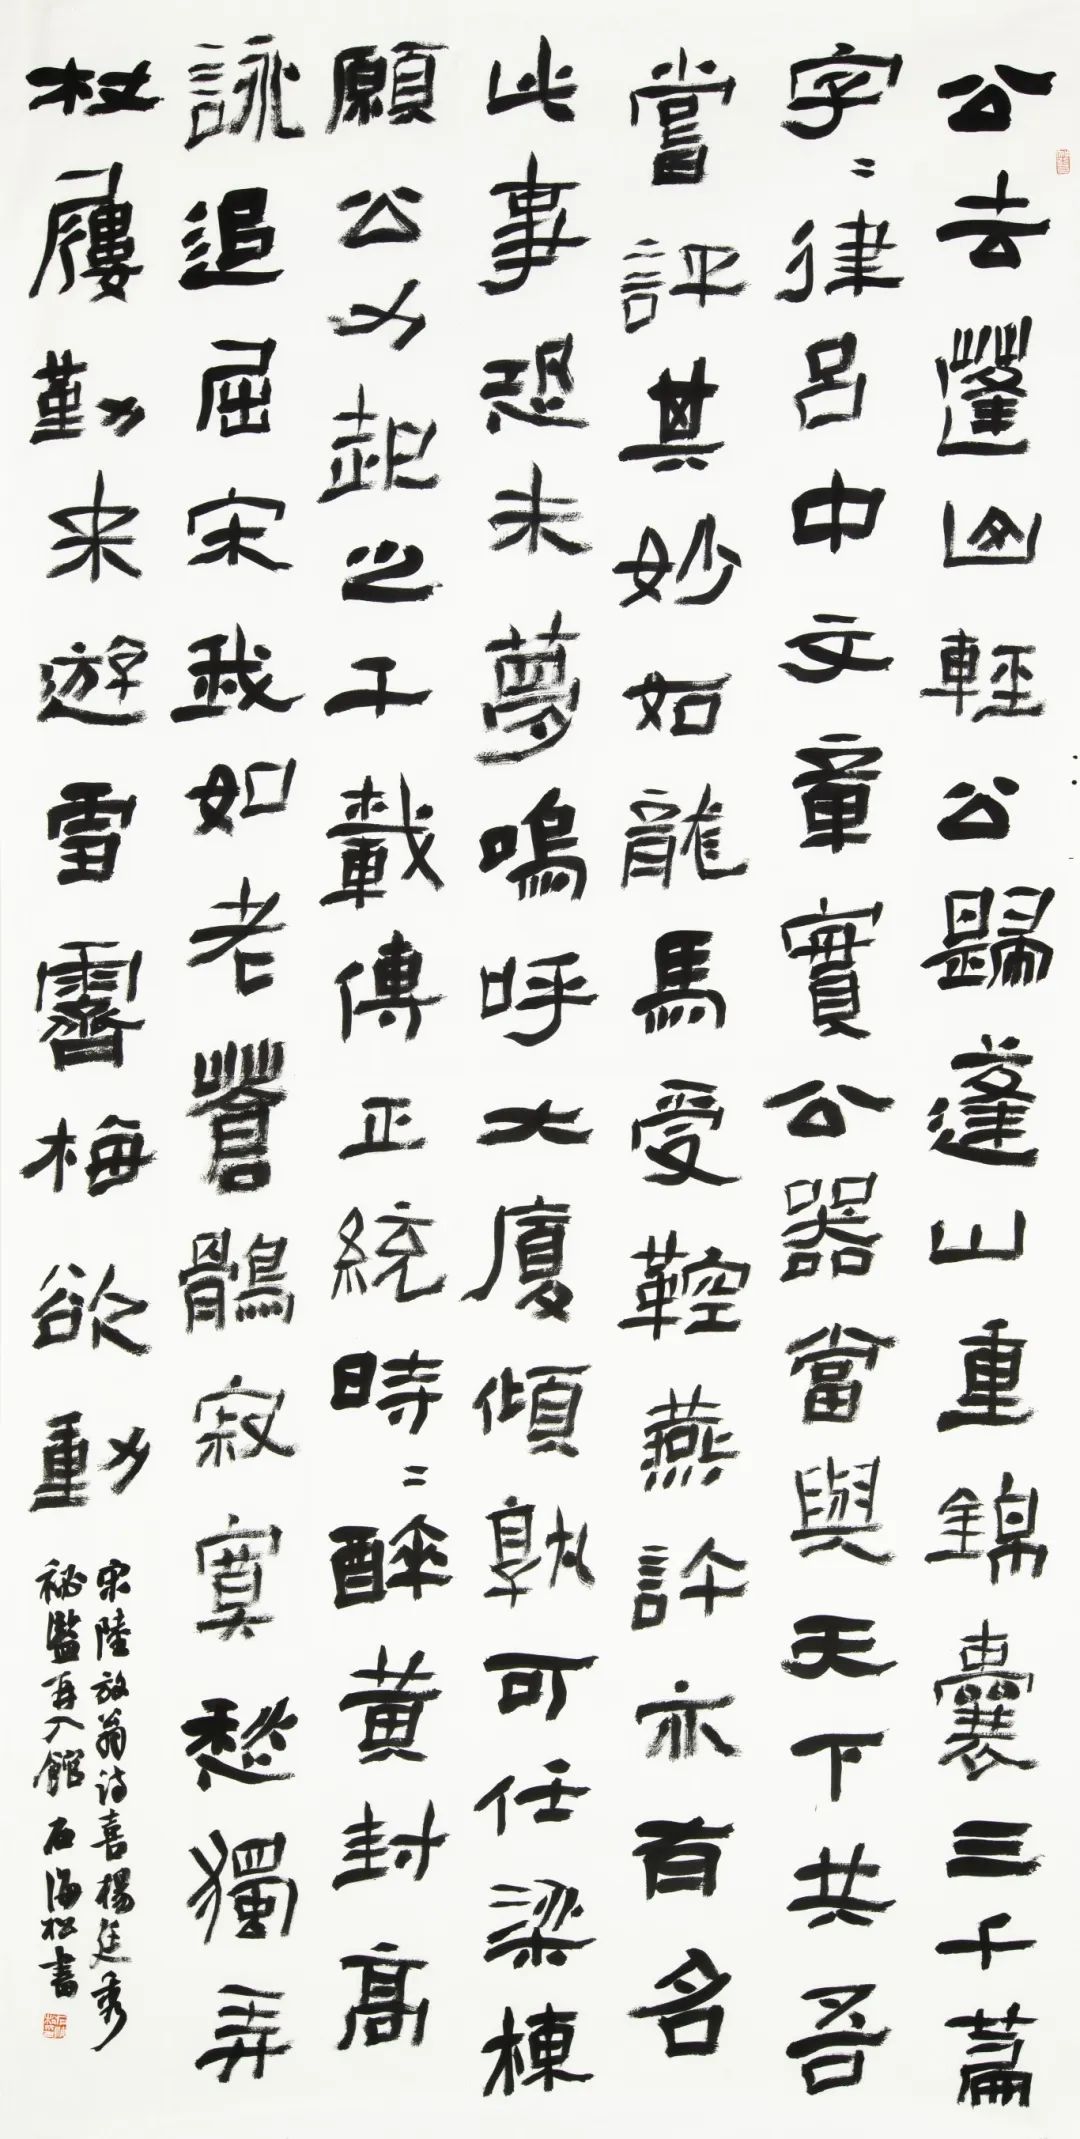 公去蓬山輕公歸蓬山重錦囊三千篇
字〻律呂中文章實公器當與天下共吾
嘗評其妙如龍馬受鞚燕許亦有名
此事恐未夢嗚呼大廈傾孰可任梁棟
願公力起之千載傳正統時〻醉黃封高
詠追屈宋我如老蒼鶻寂寞愁獨弄
杖屨勤來遊雪霽梅欲動
宋陸放翁诗喜楊廷秀
祕監再入館 石海松書